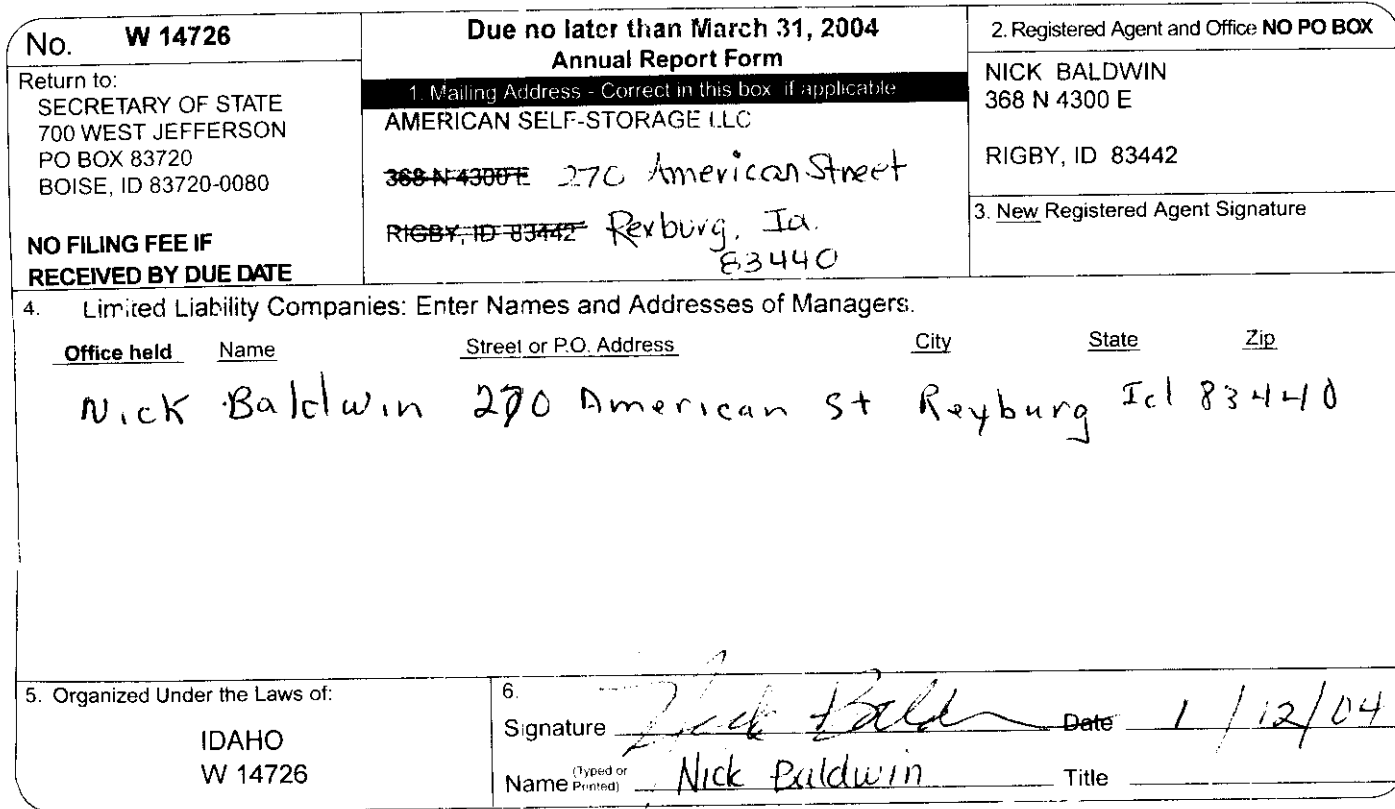 No. W 14726
Return to:
SECRETARY OF STATE
700 WEST JEFFERSON
PO BOX 83720
BOISE, ID 83720-0080
NO FILING FEE IF
RECEIVED BY DUE DATE
Due no later than March 31, 2004
Annual Report Form
1. Mailing Address - Correct in this box if applicable
AMERICAN SELF-STORAGE LLC
368 N 4300 E 270 American Street
RIGBY, ID 83442 Rexburg, Id.
83440
2. Registered Agent and Office NO PO BOX
NICK BALDWIN
368 N 4300 E
RIGBY, ID 83442
3. New Registered Agent Signature
4. Limited Liability Companies: Enter Names and Addresses of Managers.
Office held Name Street or P.O. Address City State Zip
Nick Baldwin 270 American St Rexburg Id 83440
5. Organized Under the Laws of:
IDAHO
W 14726
6.
Signature Nick Baldwin Date 1/12/04
Name (Typed or Printed) Nick Baldwin Title